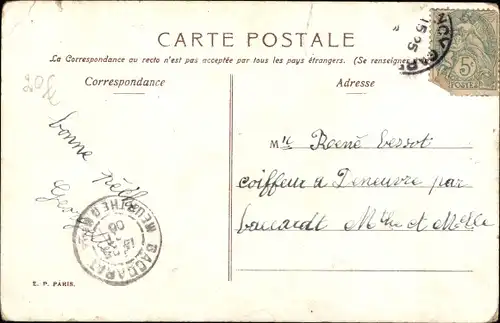 CARTE POSTALE
La Correspondance au recto n'est pas acceptée par tous les pays étrangers. (Se renseigner
Correspondance
Adresse
bonne
Georg
Mr René Vessot
coiffeur a Deneuvre par
Baccarat Mthe et Mlle
5c
POSTES
BACCARAT
MEURTHE
E. P. PARIS.